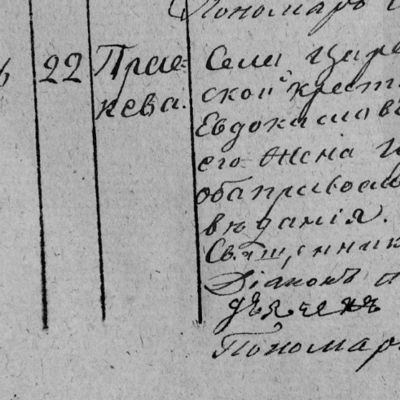 Пономарь
22 Прас-
кева.
Села Царе
ской крест
Евдоким
его Жена
оба православ
вѣданія.
Священник
Діаконъ
дьячекъ
Пономар